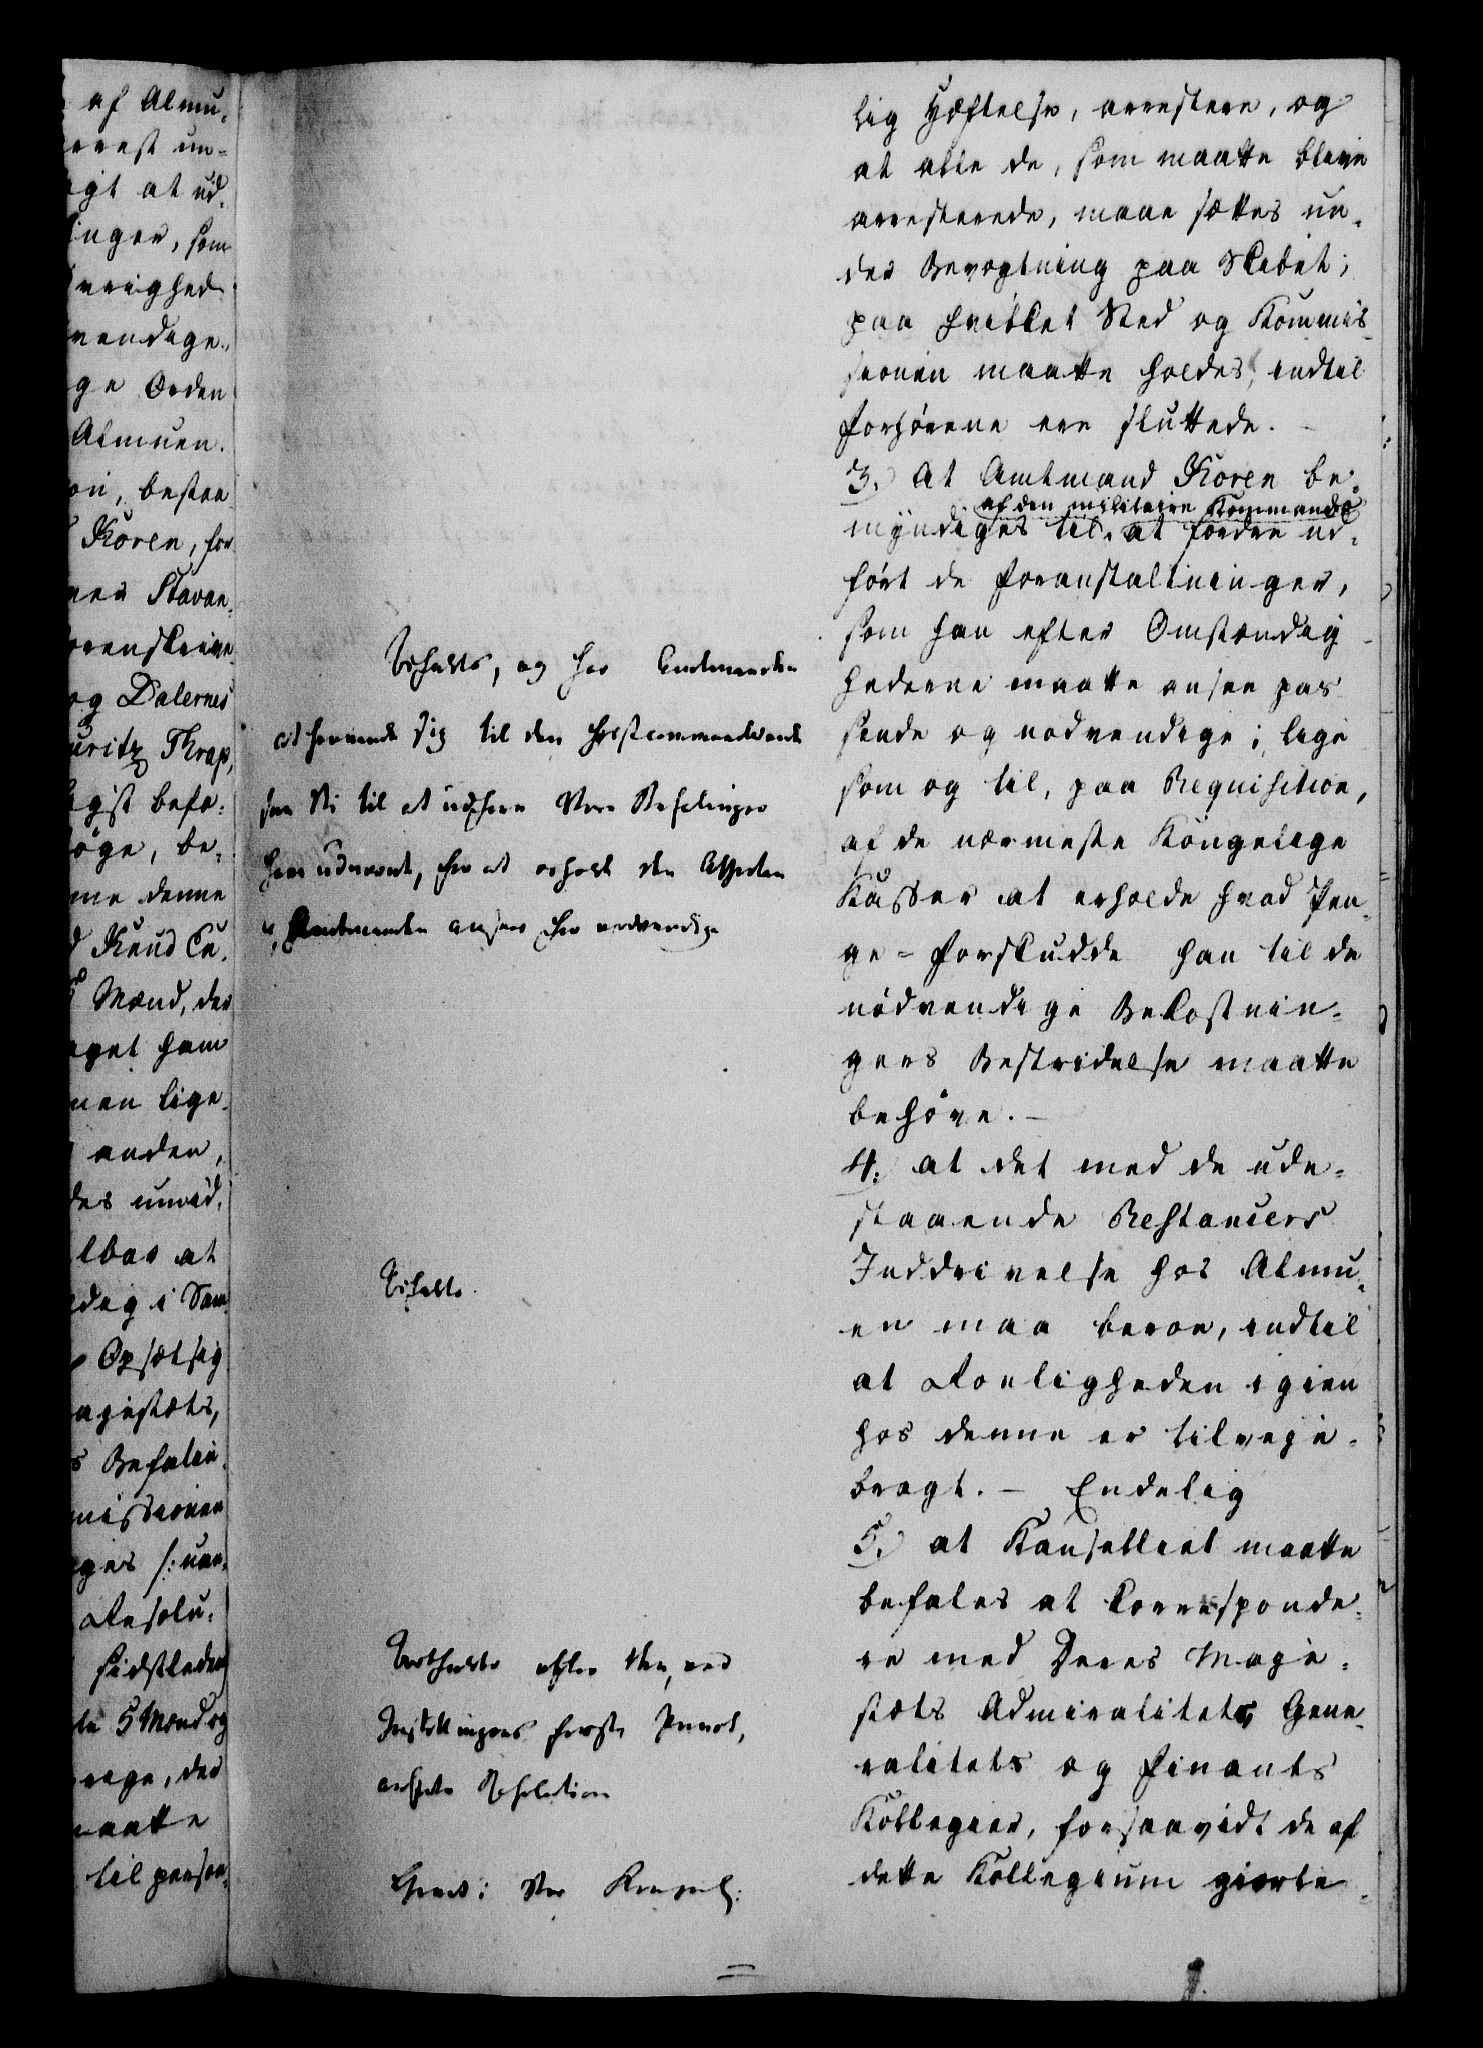 af Almu-
un-
at ud-
inger, som
vrighed
vendige
ge Orden
Almuen.
on, bestaa
Koren, for
Stavan-
orenskrive
og Dalernes
uritz Thrap,
befa-
øge, be-
me denne
Knud
Mænd, der
aget ham
men lige-
anden,
des unvid-
lbar at
dig i Sam
Opsætsig
ajestæts,
Befalin
missionen
ges /: uan-
Resolu-
sidstleden
te 5 Mænd og
rage, der
maatte
til person-
Bifaldes, og har Amtmanden
at henvende sig til den
som Vi til at udføre Vore Befalinger
have udnævnt, for at erholde den
Amtmanden anseer for nødvendige
Bifaldes.
efter den, ved
Indstillingens første Punct,
Resolution
lig Hæftelse, arrestere, og
at alle de, som maatte blive
arresterede, maae sættes un-
der Bevogtning paa Skibet;
paa hvilket Sted og Kommis-
sionen maatte holdes, indtil
Forhørene ere sluttede. -
3. At Amtmand Koren be-
af den militaire Kommando
myndiges til at fordre ud-
ført de Foranstaltninger,
som han efter Omstændig-
hederne maatte ansee pas-
sende og nødvendige; lige
som og til, paa Requisition,
af de nærmeste Kongelige
Kasser at erholde hvad Pen-
ge-Forskudde han til de
nødvendige Bekostnin-
gers Bestridelse maatte
behøve. -
4. at det med de ude-
staaende Restancers
Inddrivelse hos Almu-
en maa beroe, indtil
at Roeligheden igien
hos denne er tilveje-
bragt. - Endelig
5. at Kanselliet maatte
befales at korresponde-
re med Deres Maje-
stæts Admiralitets, Gene-
ralitets og Finants
Kollegier, forsaavidt de af
dette Kollegium giorte